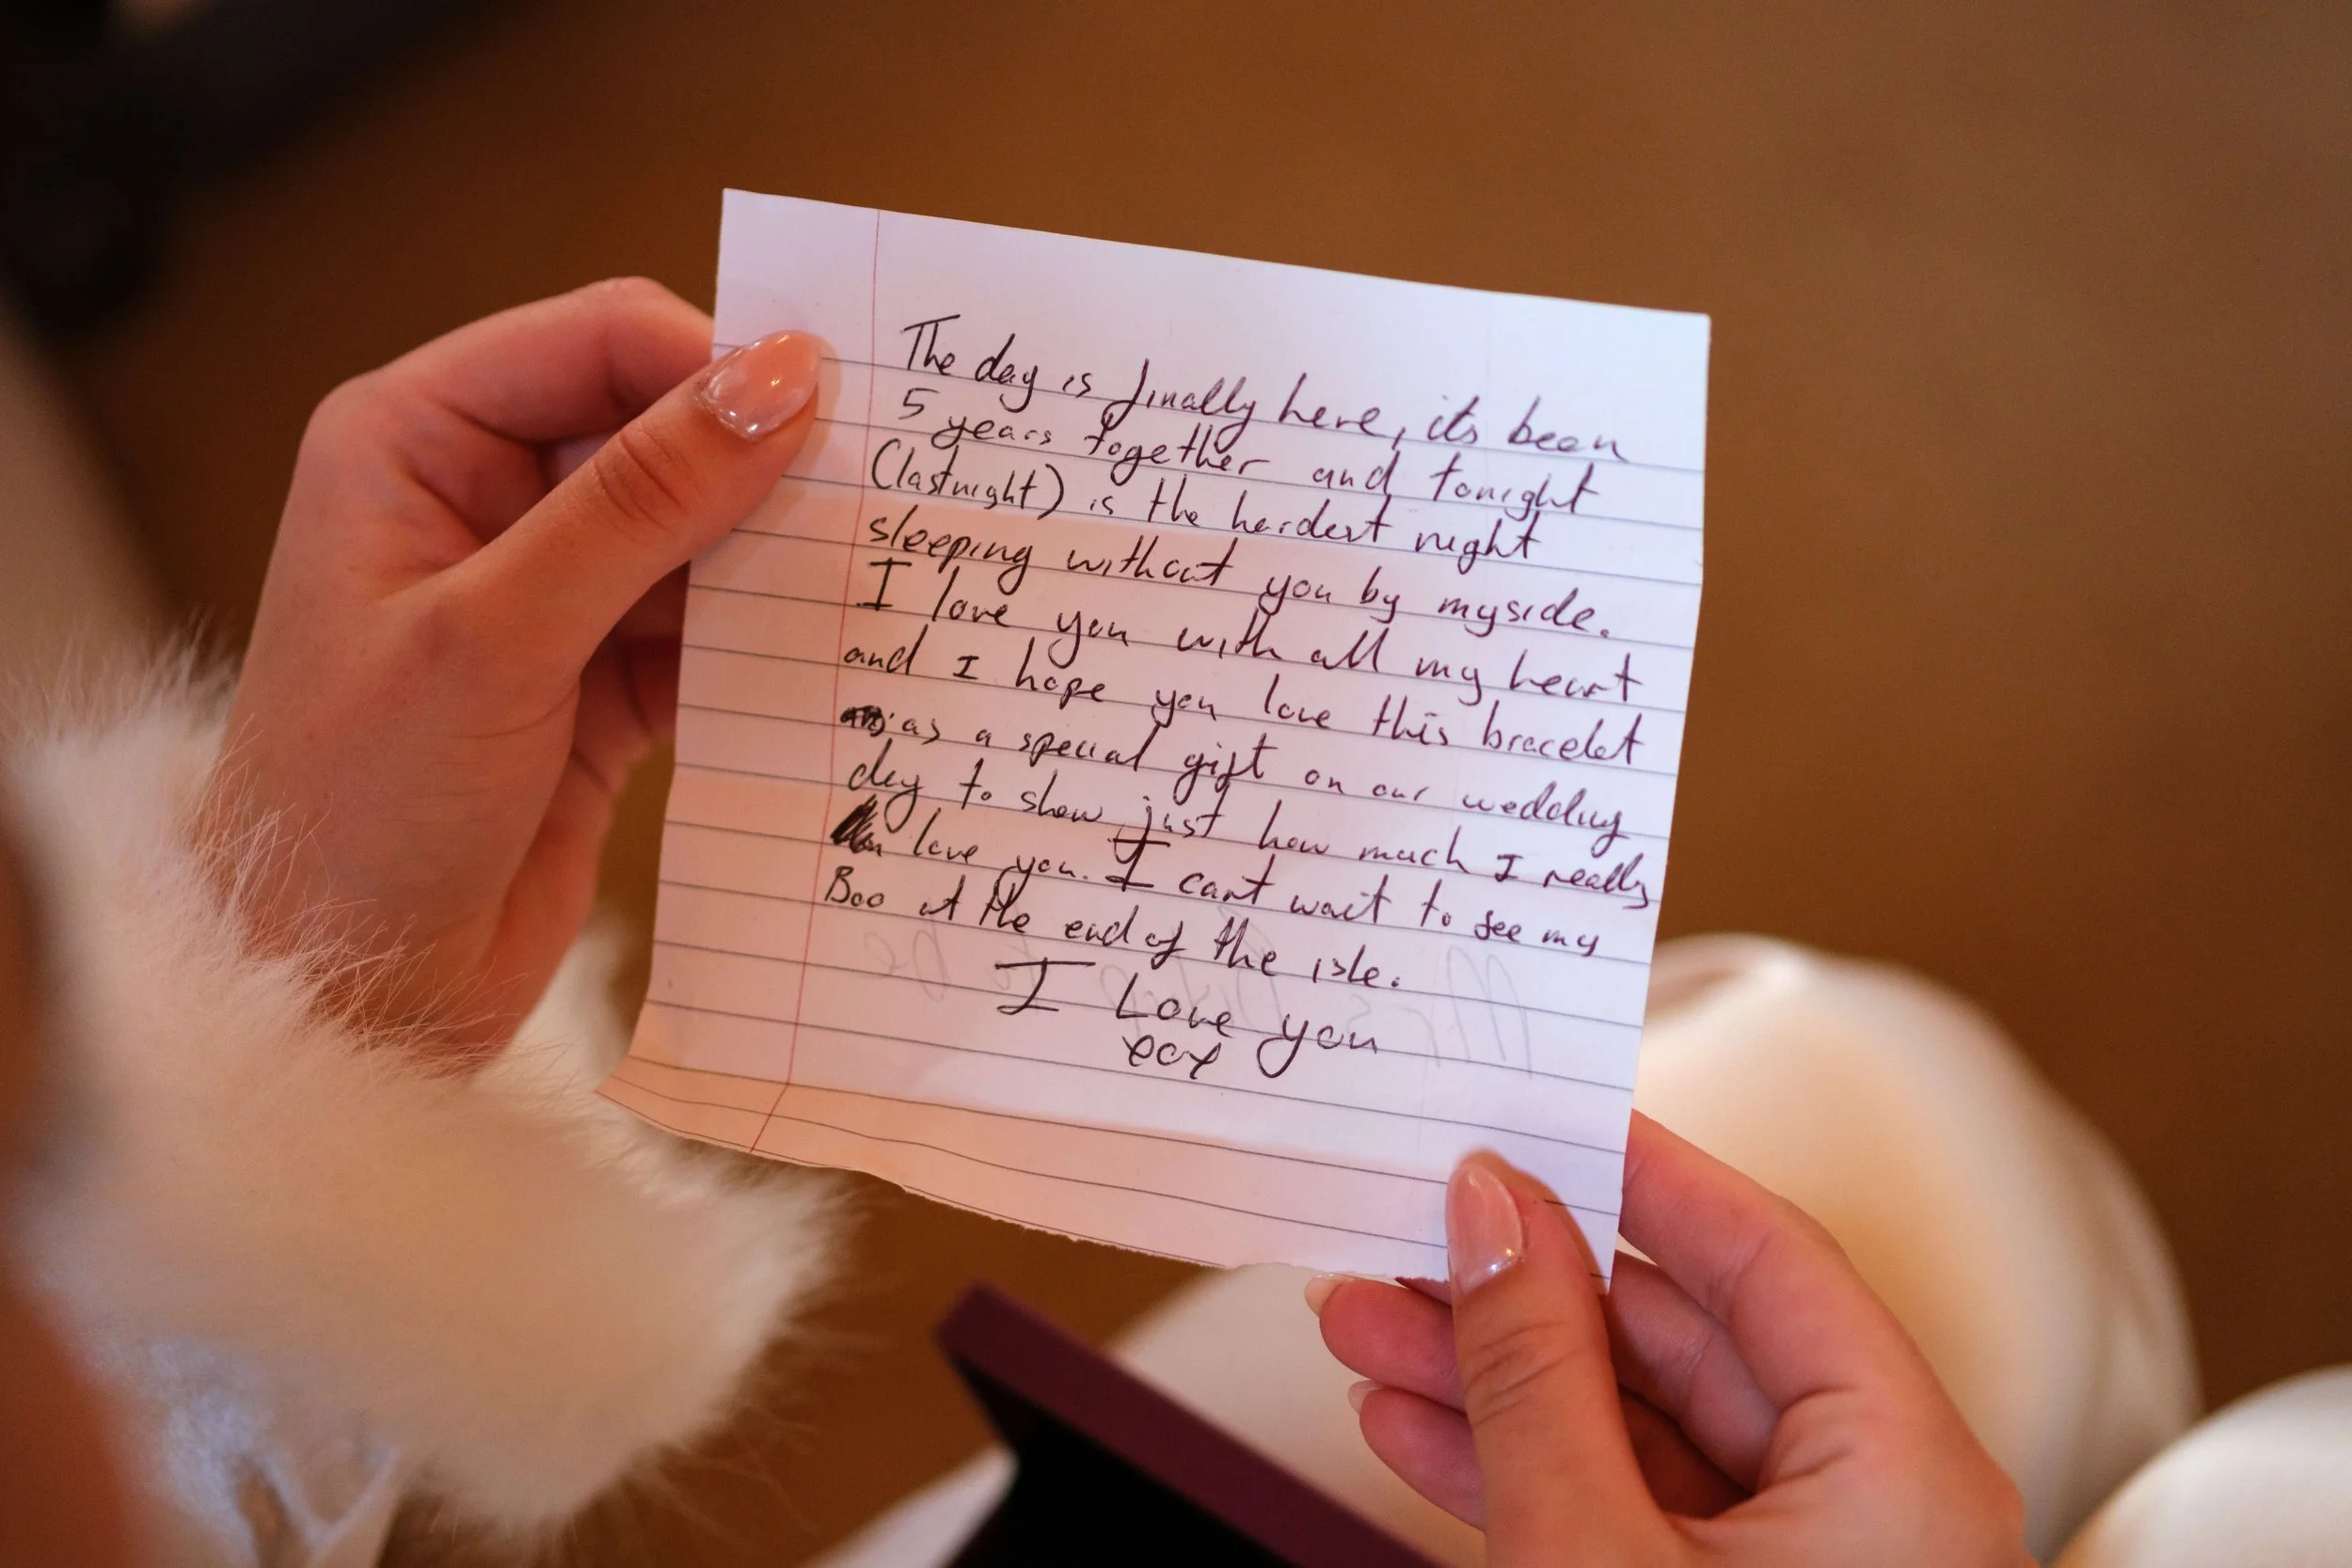 The day is finally here, its been
5 years together and tonight
(lastnight) is the hardest night
sleeping without you by myside.
I love you with all my heart
and I hope you love this bracelet
as a special gift on our wedding
day to show just how much I really
love you. I cant wait to see my
Boo at the end of the isle.
I Love you
xox